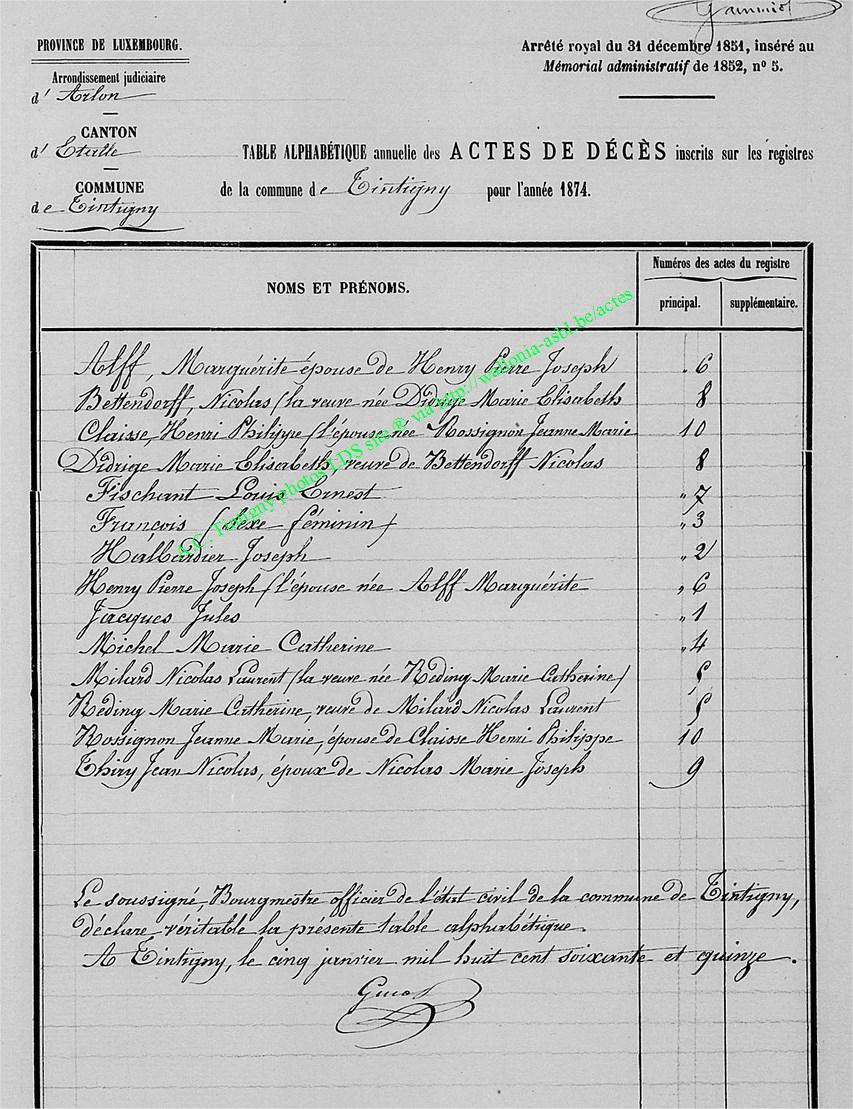 PROVINCE DE LUXEMBOURG.
Arrondissement judiciaire
d' Arlon
CANTON
d' Etalle
COMMUNE
de Tintigny
Arrêté royal du 31 décembre 1851, inséré au
Mémorial administratif de 1852, nº 5.
TABLE ALPHABÉTIQUE annuelle des ACTES DE DÉCÈS inscrits sur les registres
de la commune de Tintigny pour l'année 1874.
NOMS ET PRÉNOMS.
Numéros des actes du registre
principal. supplémentaire.
A.C. Tintigny photos LDS site ® via http://wallonia-asbl.be/actes
Alff, Marguérite épouse de Henry Pierre Joseph " 6
Bettendorff, Nicolas (la veuve née Didrige Marie Elisabeth 8
Claisse, Henri Philippe (l'épouse née Rossignon Jeanne Marie 10
Didrige Marie Elisabeth, veuve de Bettendorff Nicolas 8
Fischant Louis Ernest " 7
François (sexe féminin) " 3
Halbardier Joseph " 2
Henry Pierre Joseph (l'épouse née Alff Marguérite " 6
Jacques Jules " 1
Michel Marie Catherine " 4
Milard Nicolas Laurent (la veuve née Réding Marie Catherine) 5
Réding Marie Catherine, veuve de Milard Nicolas Laurent 5
Rossignon Jeanne Marie, épouse de Claisse Henri Philippe 10
Thiry Jean Nicolas, époux de Nicolas Marie Joseph 9
Le soussigné, Bourgmestre officier de l'état civil de la commune de Tintigny,
déclare véritable la présente table alphabétique.
A Tintigny, le cinq janvier mil huit cent soixante et quinze.